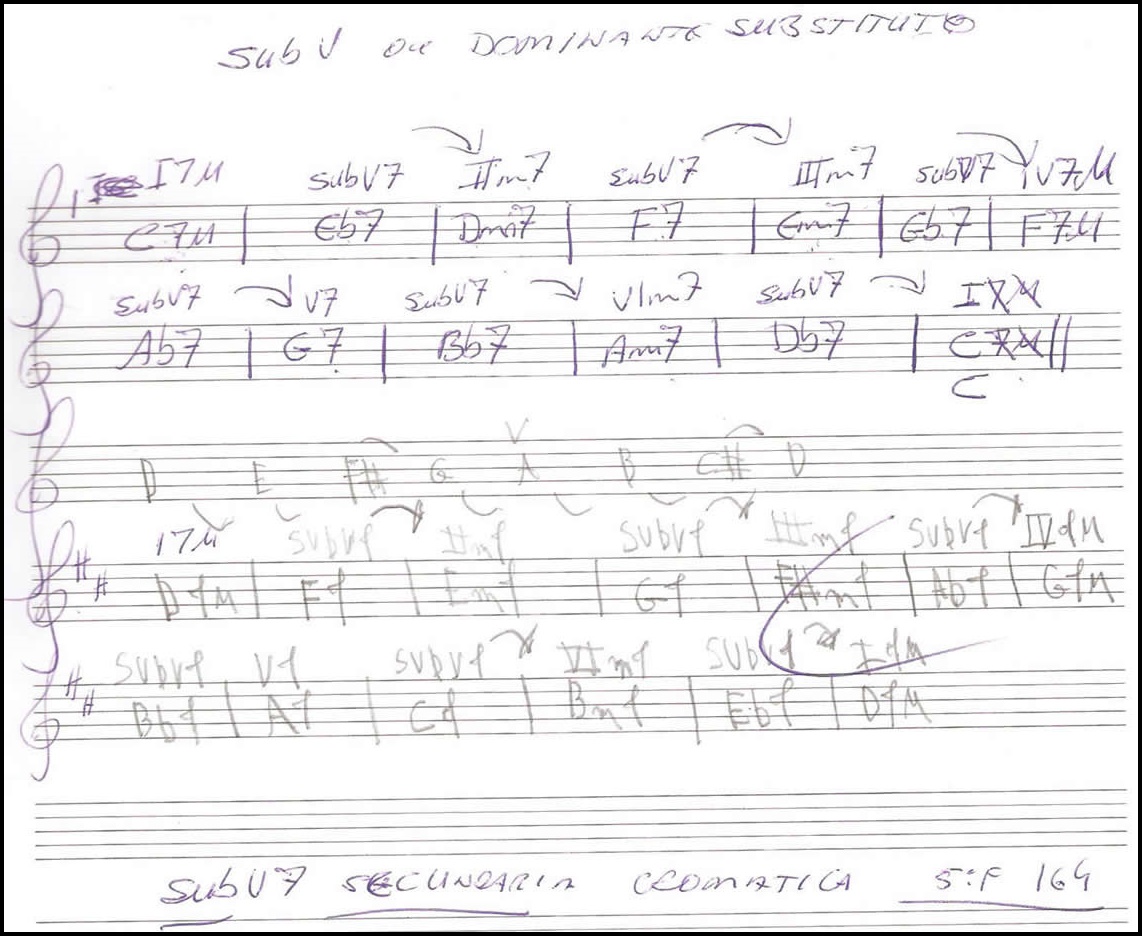 SubV ou DOMINANTE SUBSTITUTO
I7M SubV7 IIm7 SubV7 IIIm7 SubV7 IV7M
C7M | Eb7 | Dm7 | F7 | Em7 | Gb7 | F7M
SubV7 V7 SubV7 VIm7 SubV7 I7M
Ab7 | G7 | Bb7 | Am7 | Db7 | C7M ||
C
V
D E F# G A B C# D
I7M SubV7 IIm7 SubV7 IIIm7 SubV7 IV7M
D7M | F7 | Em7 | G7 | F#m7 | Ab7 | G7M
SubV7 V7 SubV7 VIm7 SubV7 I7M
Bb7 | A7 | C7 | Bm7 | Eb7 | D7M
SubV7 SECUNDARIA CROMATICA 164